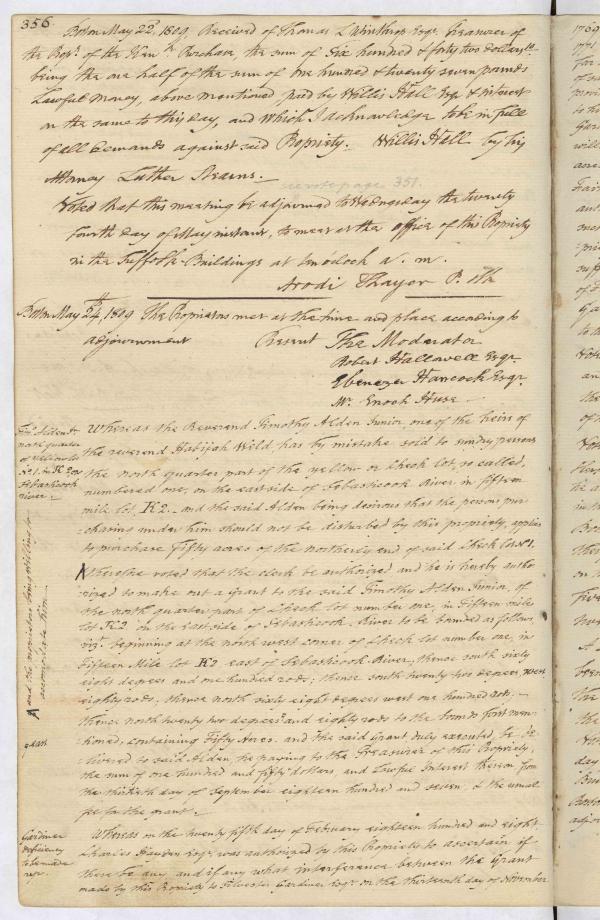 356.
Boston May 22d. 1809, Received of Thomas L Winthrop Esqr. Treasurer of
the Propy. of the Kenn. Purchase, the sum of Six hundred & forty two dollars
being the one half of the sum of one hundred & twenty seven pounds
Lawful money, above mentioned, paid by Willis Hall Esqr & interest
on the same to this day, and which I acknowledge to be in full
of all Demands against said Propriety. Willis Hall by his
Attorney Luther Stearns.
see note page 351.
Voted that this meeting be adjourned to Wednesday the twenty
fourth day of May instant, to meet at the office of this Propriety
in the Suffolk-Buildings at o'clock a. m.
Arodi Thayer P. Clk
Boston May 24th, 1809 The Proprietors met at the time and place according to
adjournment Present The Moderator
Robert Hallowell Esqr.
Ebenezer Hancock Esqr.
Mr. Enoch Huse
Timo. Alden Jr
north quarter
of Yellow lot
No. 1. in K 2 on
Sebasticook
river
Whereas the Reverend Timothy Alden Junior, one of the heirs of
the reverend Habijah Weld has by mistake sold to sundry persons
the north quarter part of the yellow or Check lot, so called,
numbered one, on the east side of Sebasticook River in fifteen
mile lot, K 2. and the said Alden being desirous that the persons pur-
chasing under him should not be disturbed by this propriety, applies
to purchase Fifty acres of the northerly end of said Check lot No 1.
and the proprietors being willing to
accomodate him
Therefore voted that the clerk be authorized and he is hereby autho-
rized to make out a Grant to the said Timothy Alden Junior, of
the north quarter part of Check lot number one, in Fifteen mile
lot K2 on the east side of Sebasticook River to be bounded as follows
viz. beginning at the north west corner of Check lot number one, in
Fifteen Mile lot K2 east of Sebasticook River, thence south sixty
eight degrees east one hundred rods; thence south twenty two degrees west
eighty rods, thence north sixty eight degrees west one hundred rods.—
thence north twenty two degrees east eighty rods to the bounds first men-
tioned, containing Fifty Acres. and the said Grant duly executed, be de-
livered to said Alden, he paying to the Treasurer of this Propriety,
the sum of one hundred and fifty dollars, and Lawful Interest thereon from
the thirtieth day of September eighteen hundred and seven, & the usual
fee for the grant.
Gardiner
deficiency
to be made
up.
Whereas on the twenty fifth day of February eighteen hundred and eight
Charles Hayden Esqr. was authorized by this Propriety to ascertain if
there be any, and if any what interference between the Grant
made by this Propriety to Silvester Gardiner Esqr. on the thirteenth day of November